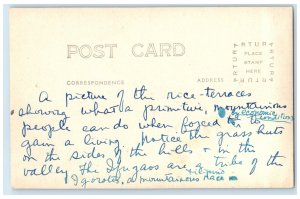 POST CARD
CORRESPONDENCE
ADDRESS
ARTURA
ARTURA
ARTURA
PLACE
STAMP
HERE
A picture of the rice-terraces
showing what a primitive, mountainous
people can do when forced by economic conditions
gain a living. Notice the grass huts
on the sides of the hills & in the
valley. The Ifugaos are a tribe of the
Filipino
Igorots, a mountainous race